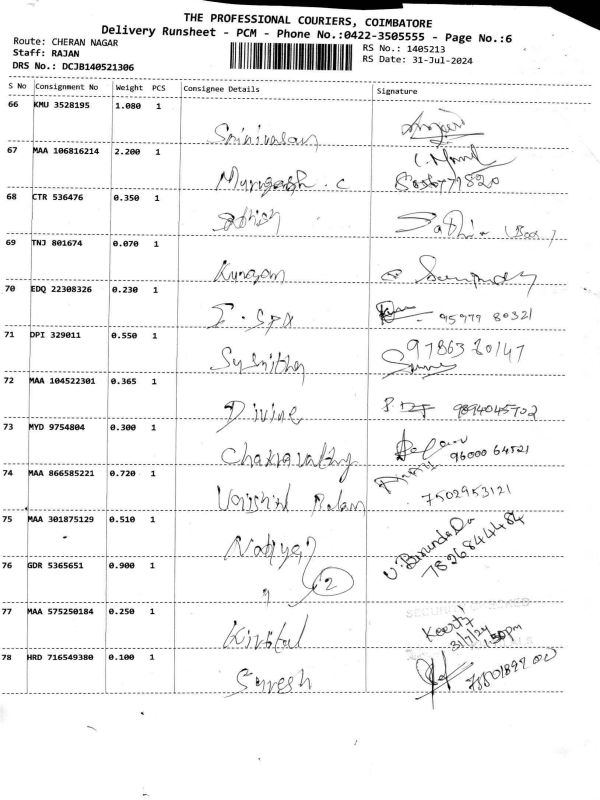 THE PROFESSIONAL COURIERS, COIMBATORE
Delivery Runsheet - PCM - Phone No.:0422-3505555 - Page No.:6
Route: CHERAN NAGAR
RS No.: 1405213
Staff: RAJAN
RS Date: 31-Jul-2024
DRS No.: DCJB140521306
S No Consignment No Weight PCS Consignee Details Signature
66 KMU 3528195 1.080 1
Srinivasan
67 MAA 106816214 2.200 1
Murugesh . C
68 CTR 536476 0.350 1
Sathish Sathis (Box)
69 TNJ 801674 0.070 1
70 EDQ 22308326 0.230 1
95979 80321
71 DPI 329011 0.550 1
72 MAA 104522301 0.365 1
Divine 9894045702
73 MYD 9754804 0.300 1
Chakravathy 96000 64521
74 MAA 866585221 0.720 1
7502953121
75 MAA 301875129 0.510 1
7826844484
76 GDR 5365651 0.900 1
" 2
77 MAA 575250184 0.250 1
Keerti
31/7/24
1.30pm
78 HRD 716549380 0.100 1
Suresh